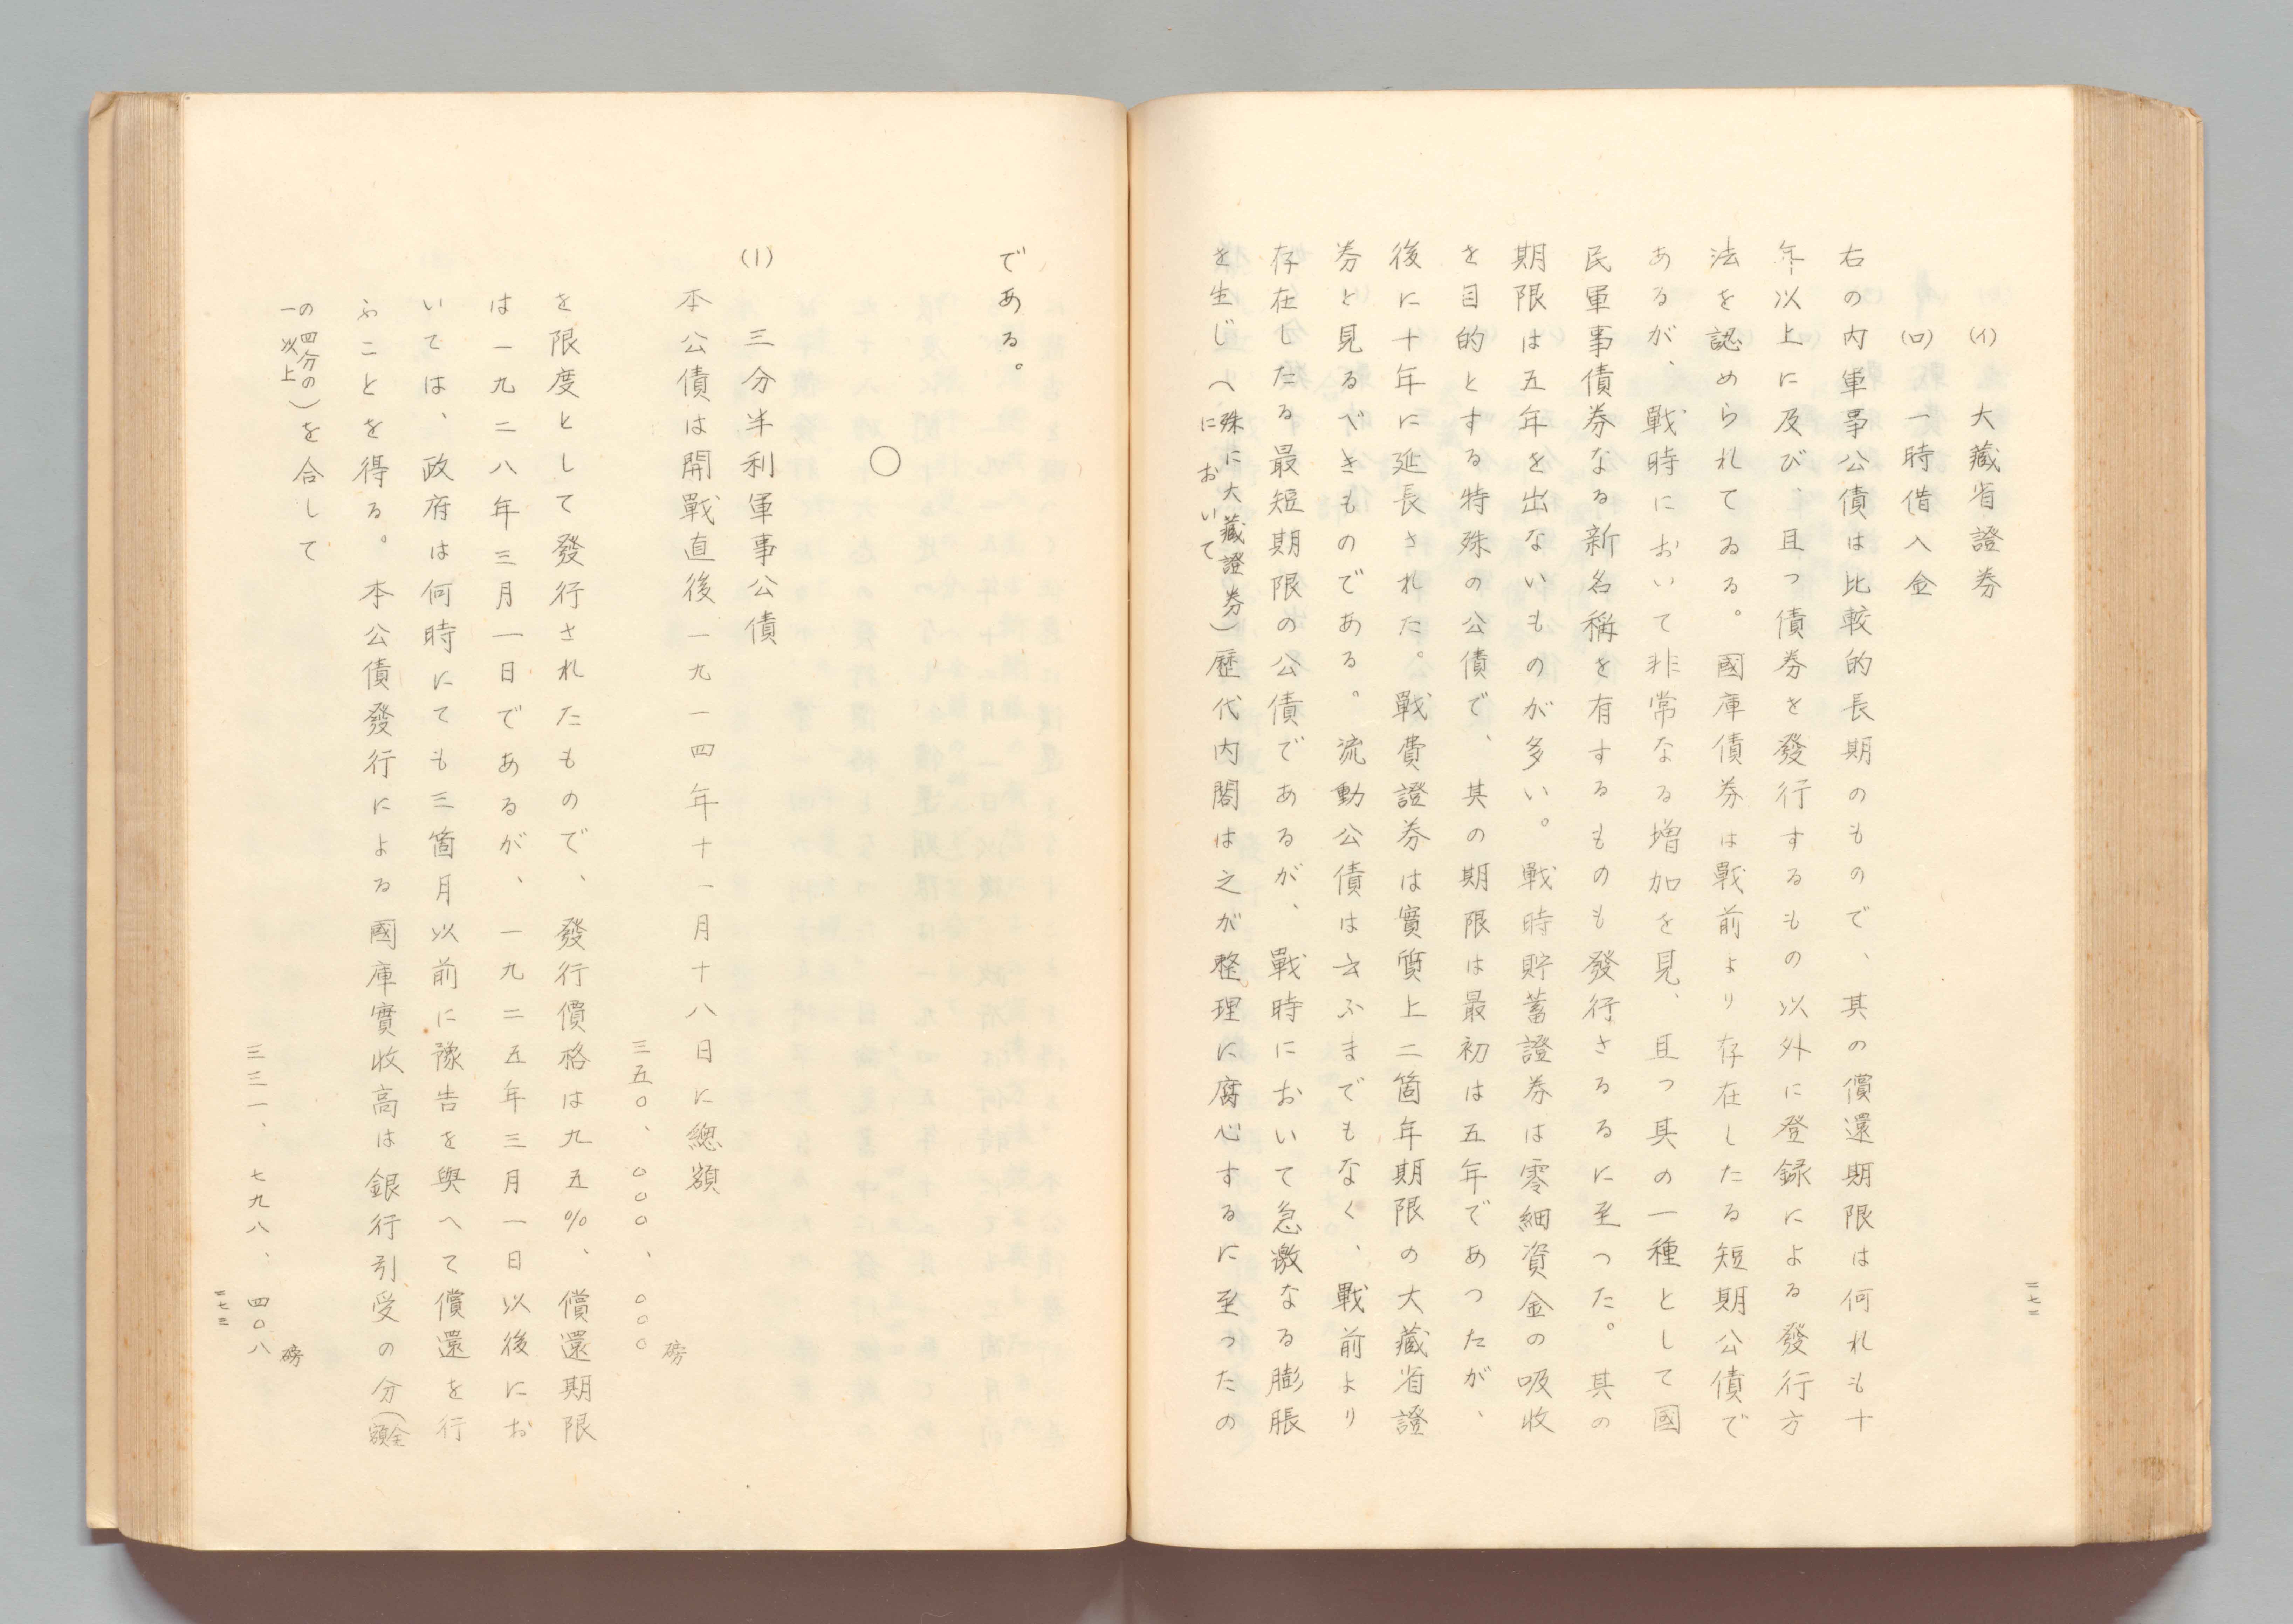 (イ) 大藏省證券
(ロ) 一時借入金
右の内軍事公債は比較的長期のもので、其の償還期限は何れも十
年以上に及び、且つ債券を發行するもの以外に登録による發行方
法を認められてゐる。國庫債券は戰前より存在したる短期公債で
あるが、戰時において非常なる増加を見、且つ其の一種として國
民軍事債券なる新名稱を有するものも發行さるるに至つた。其の
期限は五年を出ないものが多い。戰時貯蓄證券は零細資金の吸收
を目的とする特殊の公債で、其の期限は最初は五年であつたが、
後に十年に延長された。戰費證券は實質上二箇年期限の大藏省證
券と見るべきものである。流動公債は云ふまでもなく、戰前より
存在したる最短期限の公債であるが、戰時において急激なる膨脹
を生じ(殊に大藏證券において)歷代内閣は之が整理に腐心するに至つたの
二七二
である。
○
(1) 三分半利軍事公債
本公債は開戰直後一九一四年十一月十八日に總額
三五〇、〇〇〇、〇〇〇磅
を限度として發行されたもので、發行價格は九五%、償還期限
は一九二八年三月一日であるが、一九二五年三月一日以後にお
いては、政府は何時にても三箇月以前に豫告を與へて償還を行
ふことを得る。本公債發行による國庫實收高は銀行引受の分(全額
の四分の一以上)を合して
三三一、七九八、四〇八磅
二七三